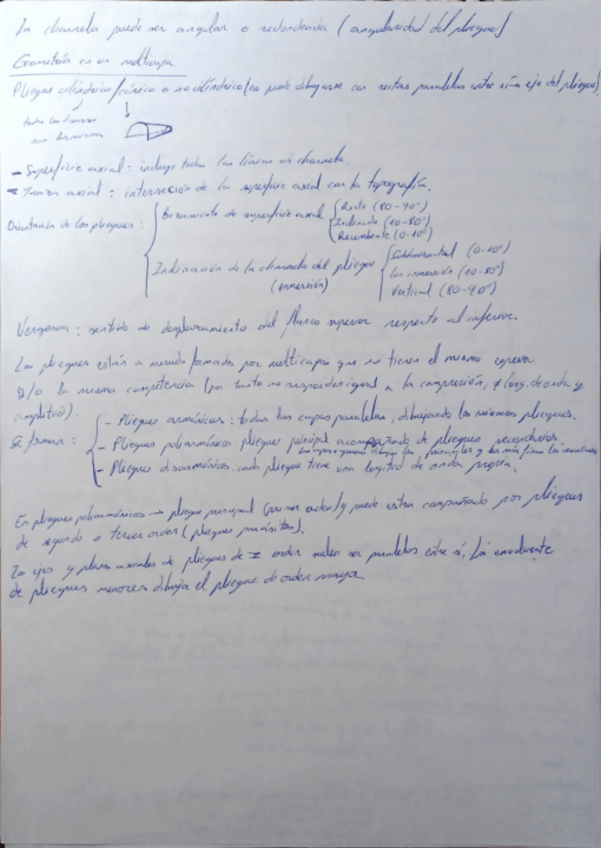 La charnela puede ser angular o redondeada (angularidad del pliegue)
Geometría en un multicapa
Pliegue cilíndrico/cónico o no cilíndrico (no puede dibujarse con rectas paralelas entre sí a eje del pliegue)
todas las
son las mismas
- Superficie axial: incluye todas las líneas de charnela.
- Traza axial: intersección de la superficie axial con la topografía.
Orientación de los pliegues:
Buzamiento de superficie axial
Recto (80-90°)
Inclinado (10-80°)
Recumbente (0-10°)
Inclinación de la charnela del pliegue
(inmersión)
Subhorizontal (0-10°)
Con inmersión (10-80°)
Vertical (80-90°)
Vergencia: sentido de desplazamiento del flanco superior respecto al inferior.
Los pliegues están a menudo formados por multicapas que no tienen el mismo espesor
y/o la misma competencia (por tanto no responden igual a la compresión, ≠ long. de onda y
amplitud).
Se forman:
- Pliegues armónicos: todas las capas paralelas, dibujando los mismos pliegues.
- Pliegues poliarmónicos pliegue principal acompañado de pliegues secundarios.
las capas gruesas dibujan los principales y las más finas los secundarios
- Pliegues disarmónicos: cada pliegue tiene una longitud de onda propia.
En pliegues poliarmónicos → pliegue principal (primer orden) y puede estar acompañado por pliegues
de segundo o tercer orden (pliegues parásitos).
Los ejes y planos axiales de pliegues de ≠ orden suelen ser paralelos entre sí. La envolvente
de pliegues menores dibuja el pliegue de orden mayor.